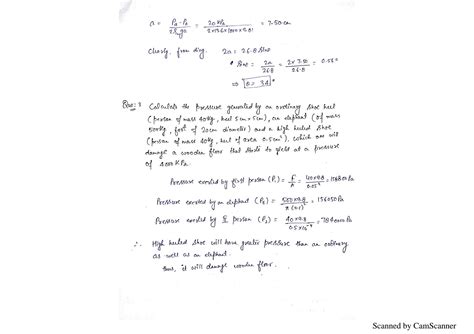 a = P₂-P₁ / 2ρg = 20KPa / 2×13.6×1000×9.81 = 7.50 cm
Clearly, from diag. 2a = 26.8 sinθ
sinθ = 2a / 26.8 = 2×7.50 / 26.8 = 0.56
⇒ θ = 34°
Ques: Calculate the pressure generated by an ordinary shoe heel
(person of mass 40kg, heel 5cm×5cm), an elephant (of mass
500kg, foot of 20cm diameter) and a high heeled shoe
(person of mass 40kg, heel of area 0.5cm²). Which one will
damage a wooden floor that starts to yield at a pressure
of 4000KPa
Pressure exerted by first person (P₁) = F/A = 40×9.8 / 0.05² = 156800 Pa
Pressure exerted by an elephant (P₂) = 500×9.8 / π(0.1)² = 156050 Pa
Pressure exerted by person (P₃) = 40×9.8 / 0.5×10⁻⁴ = 7840000 Pa
∴ High heeled shoe will have greater pressure than an ordinary
as well as an elephant.
Thus, it will damage wooden floor.
Scanned by CamScanner